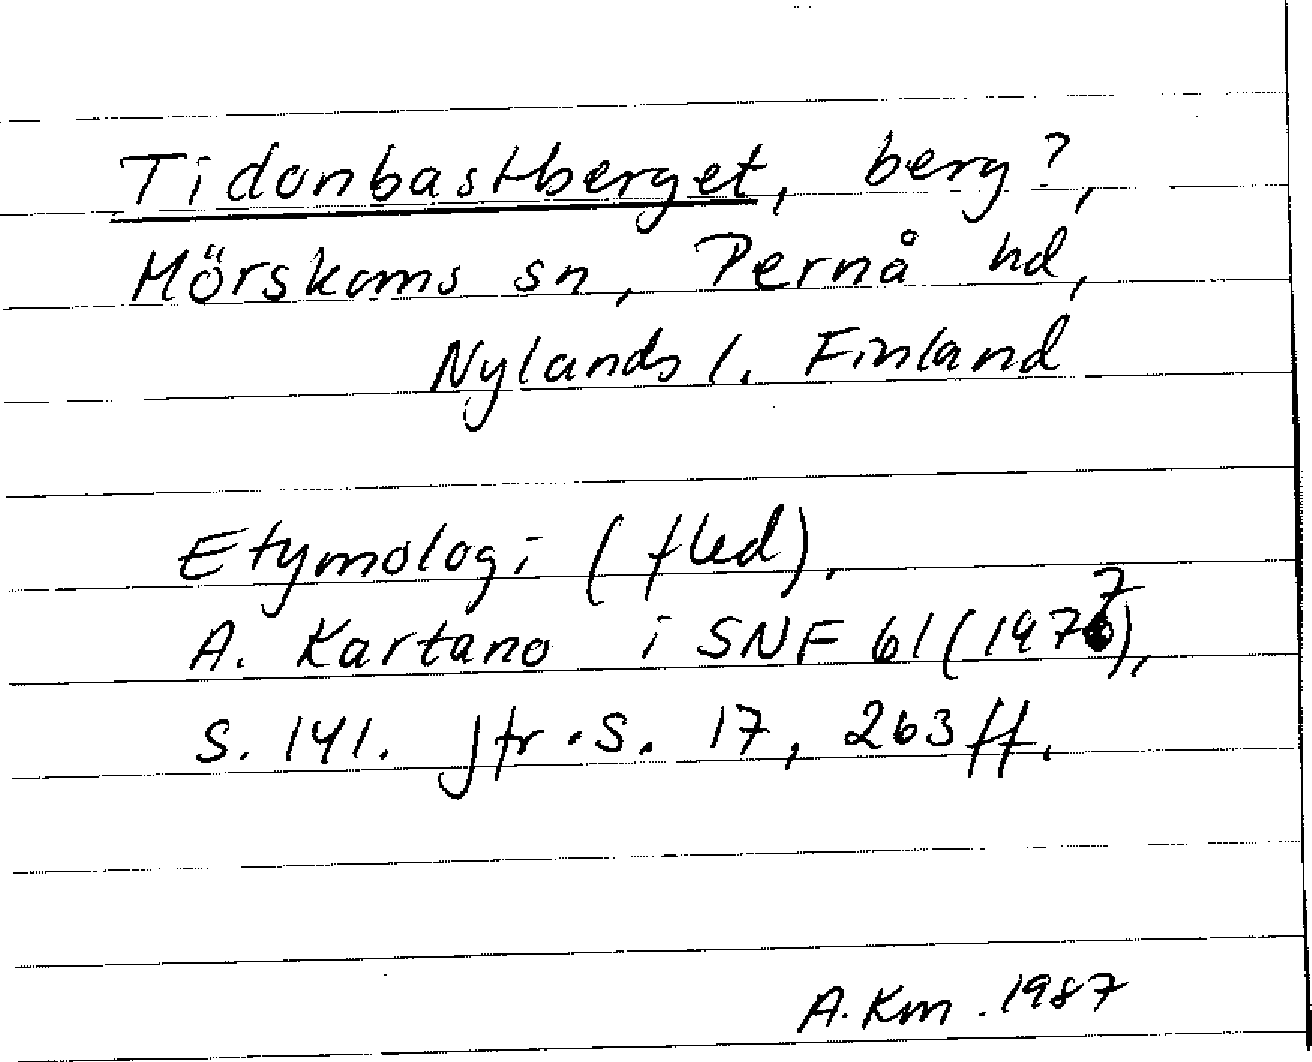 Tidanbastberget, berg?,
Mörskoms sn, Pernå hd,
Nylands l. Finland
Etymologi (fled).
A. Kartano i SNF 61 (1977),
s. 141. Jfr s. 17, 263 ff.
A. Km. 1987